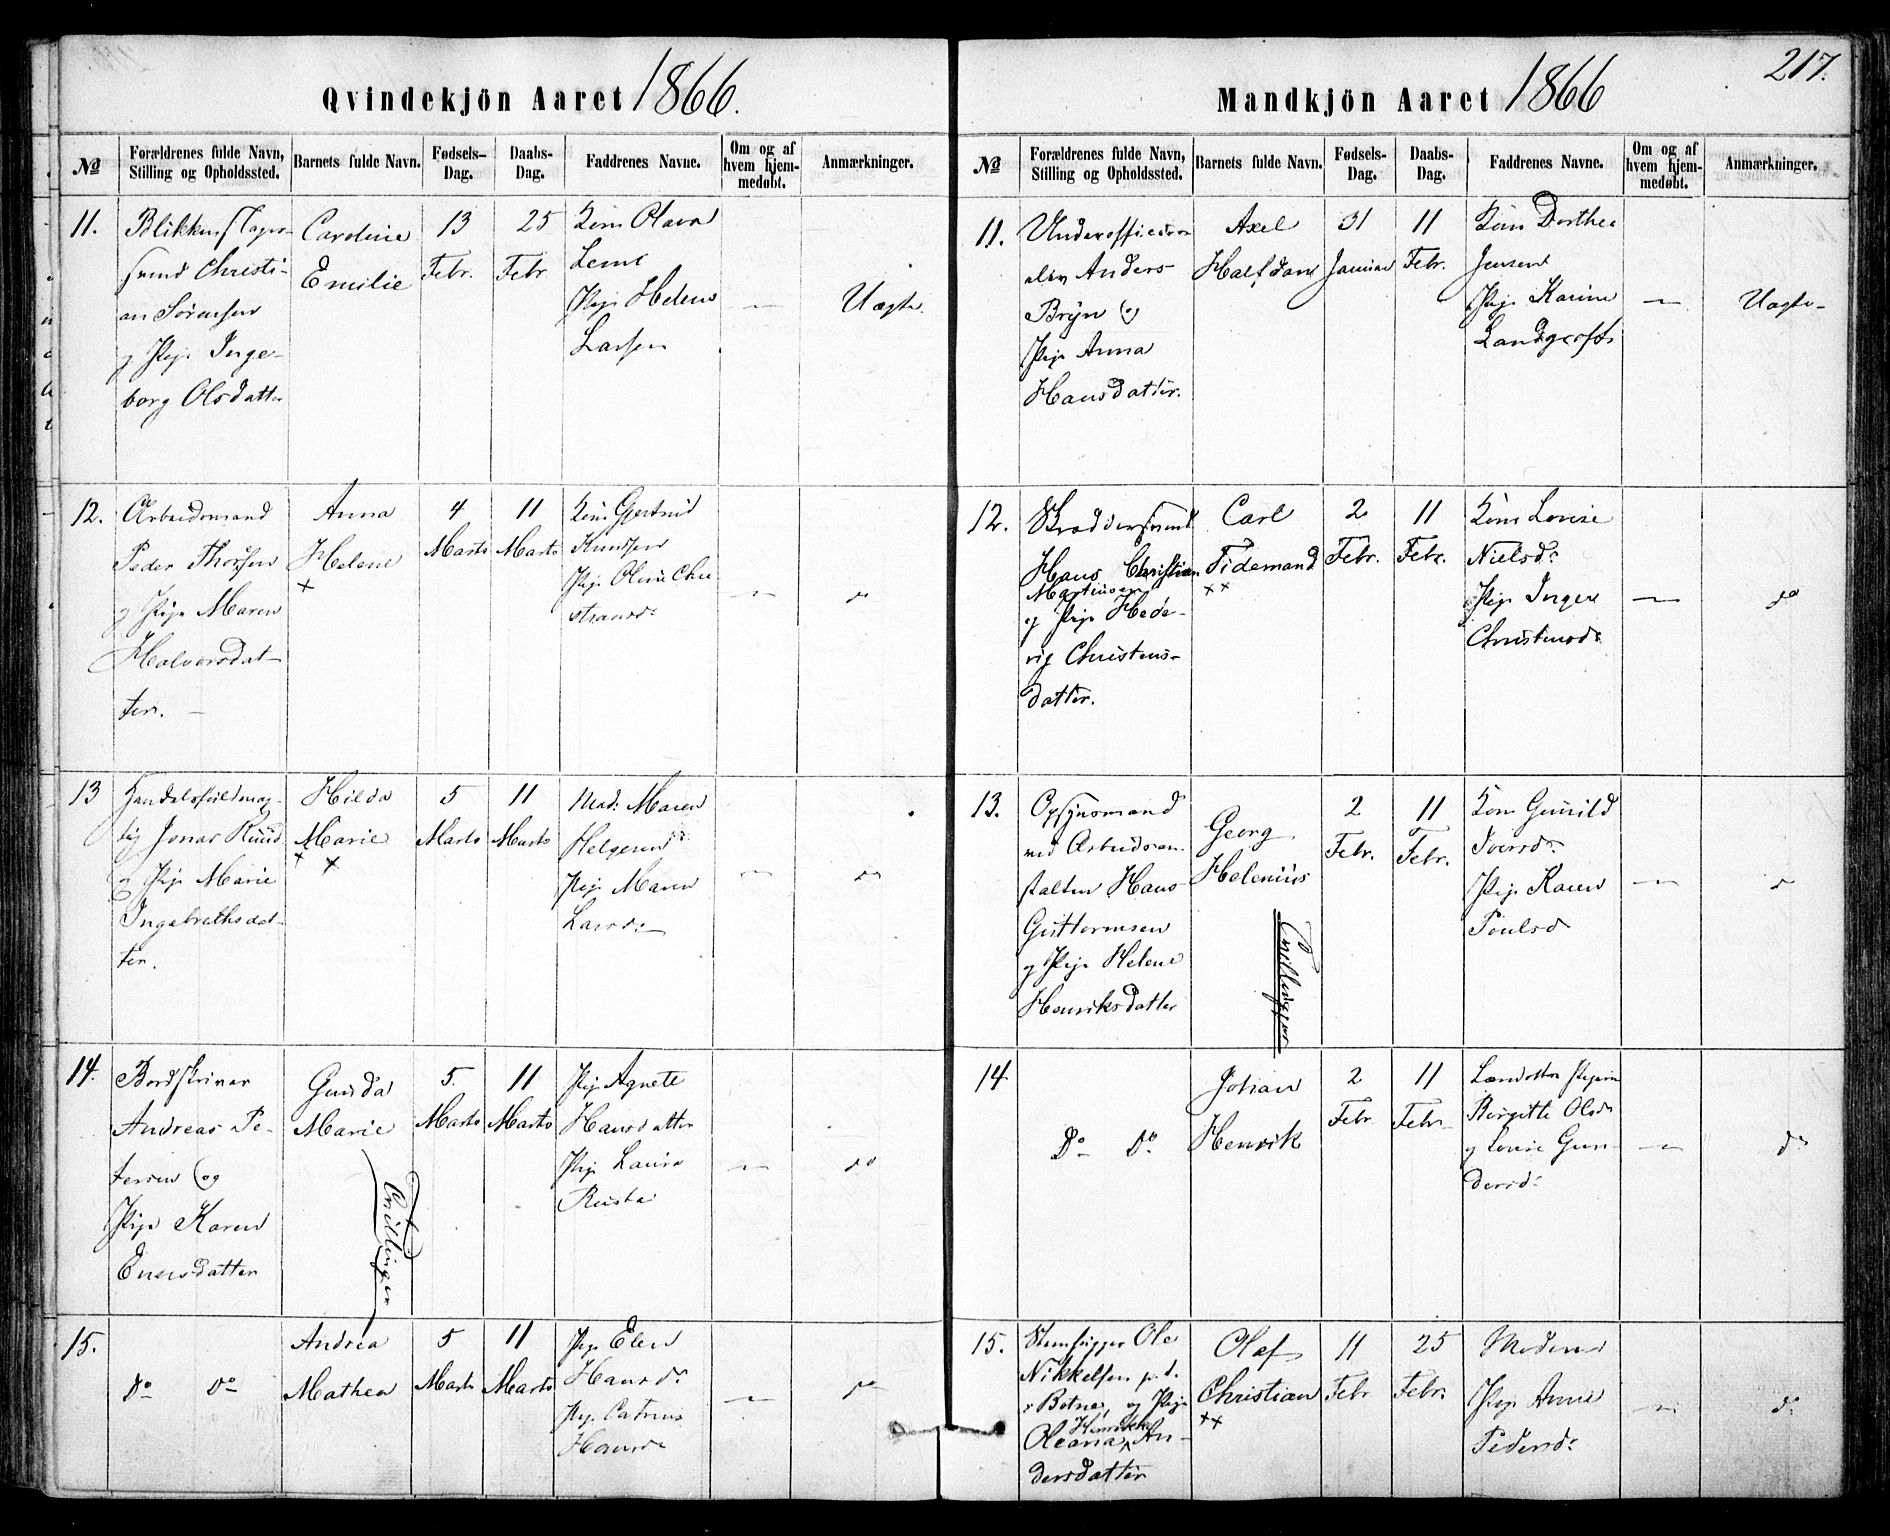 Qvindekjön Aaret 1866.
№
Forældrenes fulde Navn, Stilling og Opholdssted.
Barnets fulde Navn.
Fødsels-Dag.
Daabs-Dag.
Faddrenes Navne.
Om og af hvem hjemmedøbt.
Anmærkninger.
11.
Blikkenslager-
svend Christi-
an Sørensen
og Pige Inge-
borg Olsdatter
Caroline
Emilie
13
Febr.
25
Febr
Kone Olava
Lene
Pige Helene
Larsen
—
Uægte
12.
Arbeidsmand
Peder Thorsen
og Pige Maren
Halvorsdat-
ter. —
Anna
Helene
×
4
Marts
11
Marts
Kone Gjertrud
Knudsen
Pige Oline Chri
stiansd:
—
do
13
Handelsfuldmæg-
tig Jonas Ruud
og Pige Marie
Ingebrethsdat-
ter.
Hilda
Marie
× ×
5
Marts
11
Marts
Mad: Maren
Helgesen
Pige Maren
Larsd:
—
do
14.
Bordskriver
Andreas Pe-
tersen (og
Pige Karen
Enersdatter
Gunda
Marie
Tvillinger
5.
Marts
11
Marts
Pige Agnete
Hansdatter
Pige Laura
Rustad
—
do
15.
Do Do
Andrea
Mathea
5
Marts
11
Marts
Pige Elen
Hansd:
Pige Catrine
Hansd:
—
do
Mandkjön Aaret 1866
217.
№
Forældrenes fulde Navn, Stilling og Opholdssted.
Barnets fulde Navn.
Fødsels-Dag.
Daabs-Dag.
Faddrenes Navne.
Om og af hvem hjemmedøbt.
Anmærkninger.
11.
Underofficers
elev Anders
Bryn (og
Pige Anna
Hansdatter.
Axel
Halfdan
31
Januar
11
Febr.
Kone Dorthea
Jensen
Pige Karine
Landgraff
—
Uægte
12.
Skrædersvend
Hans Christian
Martinsen
og Pige Hede-
vig Christens-
datter.
Carl
Tidemand
××
2
Febr.
11
Febr.
Kone Lovise
Nielsd:
Pige Inger
Christensd:
—
do
13.
Opsynsmand
ved Arbeidsan-
stalten Hans
Guttormsen
og Pige Helene
Henriksdatter
Georg
Helenius
Tvillinger
2
Febr.
11
Febr.
Kone Gunild
Iversd:
Pige Karen
Poulsd
—
do
14
Do Do
Johan
Henrik
2
Febr
11
Febr.
Birgitte Olsd
og Lovise Gun-
dersd:
—
do
15.
Steenhugger Ole
Nikkelsen p.t.
i Botne, og Pige
Oleana Henrikke An-
dersdatter
Olaf
Christian
××
11
Febr
25
Febr.
Moderen
Pige Anne
Pedersd:
—
do